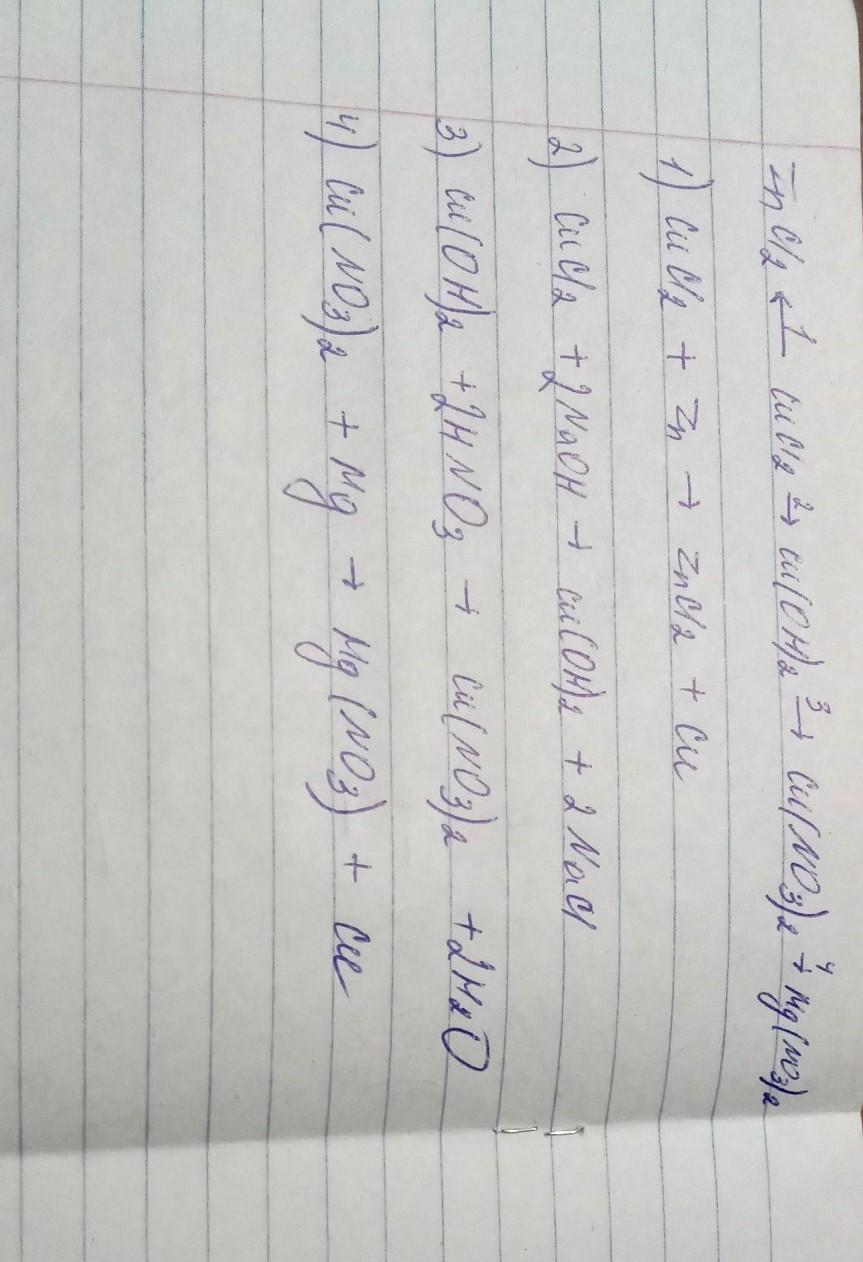 ZnCl2 ←1 CuCl2 2→ Cu(OH)2 3→ Cu(NO3)2 4→ Mg(NO3)2
1) CuCl2 + Zn → ZnCl2 + Cu
2) CuCl2 + 2NaOH → Cu(OH)2 + 2NaCl
3) Cu(OH)2 + 2HNO3 → Cu(NO3)2 + 2H2O
4) Cu(NO3)2 + Mg → Mg(NO3) + Cu